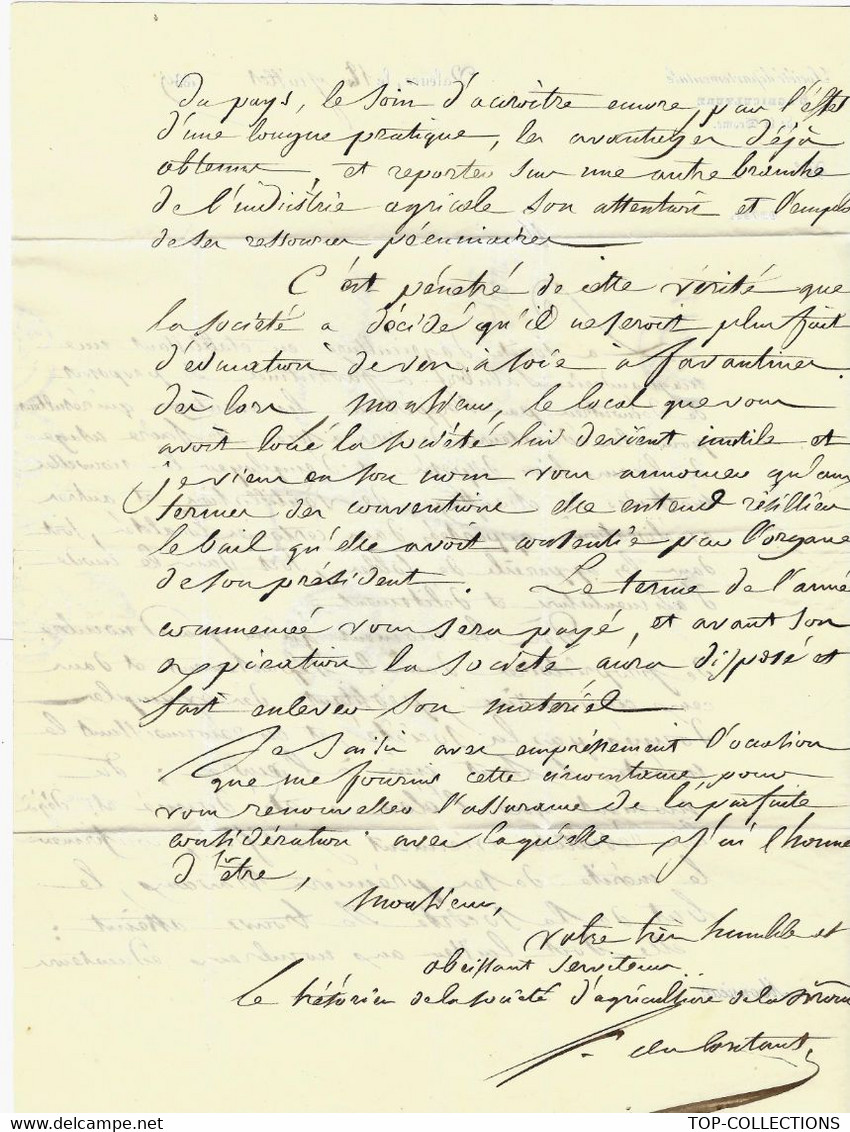 du pays, le soin d'acroître encore, par l'effet
d'une longue pratique, les avantages déjà
obtenus, et reporter sur une autre branche
de l'industrie agricole son attention et l'emploi
de ses ressources pécuniaires
C'est pénétré de cette vérité que
la société a décidé qu'il ne seroit plus fait
d'éducation de vers à soie à favantines.
dès lors Monsieur, le local que vous
avoit loué la société lui devient inutile et
je viens en son nom vous annoncer qu'aux
termes des conventions elle entend résillier
le bail qu'elle avoit contentie par l'organe
de son président. Le terme de l'année
commencée vous sera payé, et avant son
expiration la société aura disposé et
fait enlever son matériel
Je saisis avec empréssement l'ocasion
que me fournis cette circonstance pour
vous renouveller l'assurance de la parfaite
considération avec laquelle j'ai l'honneur
d'être,
Monsieur,
votre très humble et
obeissant serviteur
Le trésorier de la société d'agriculture de la Drome
TOP-COLLECTIONS